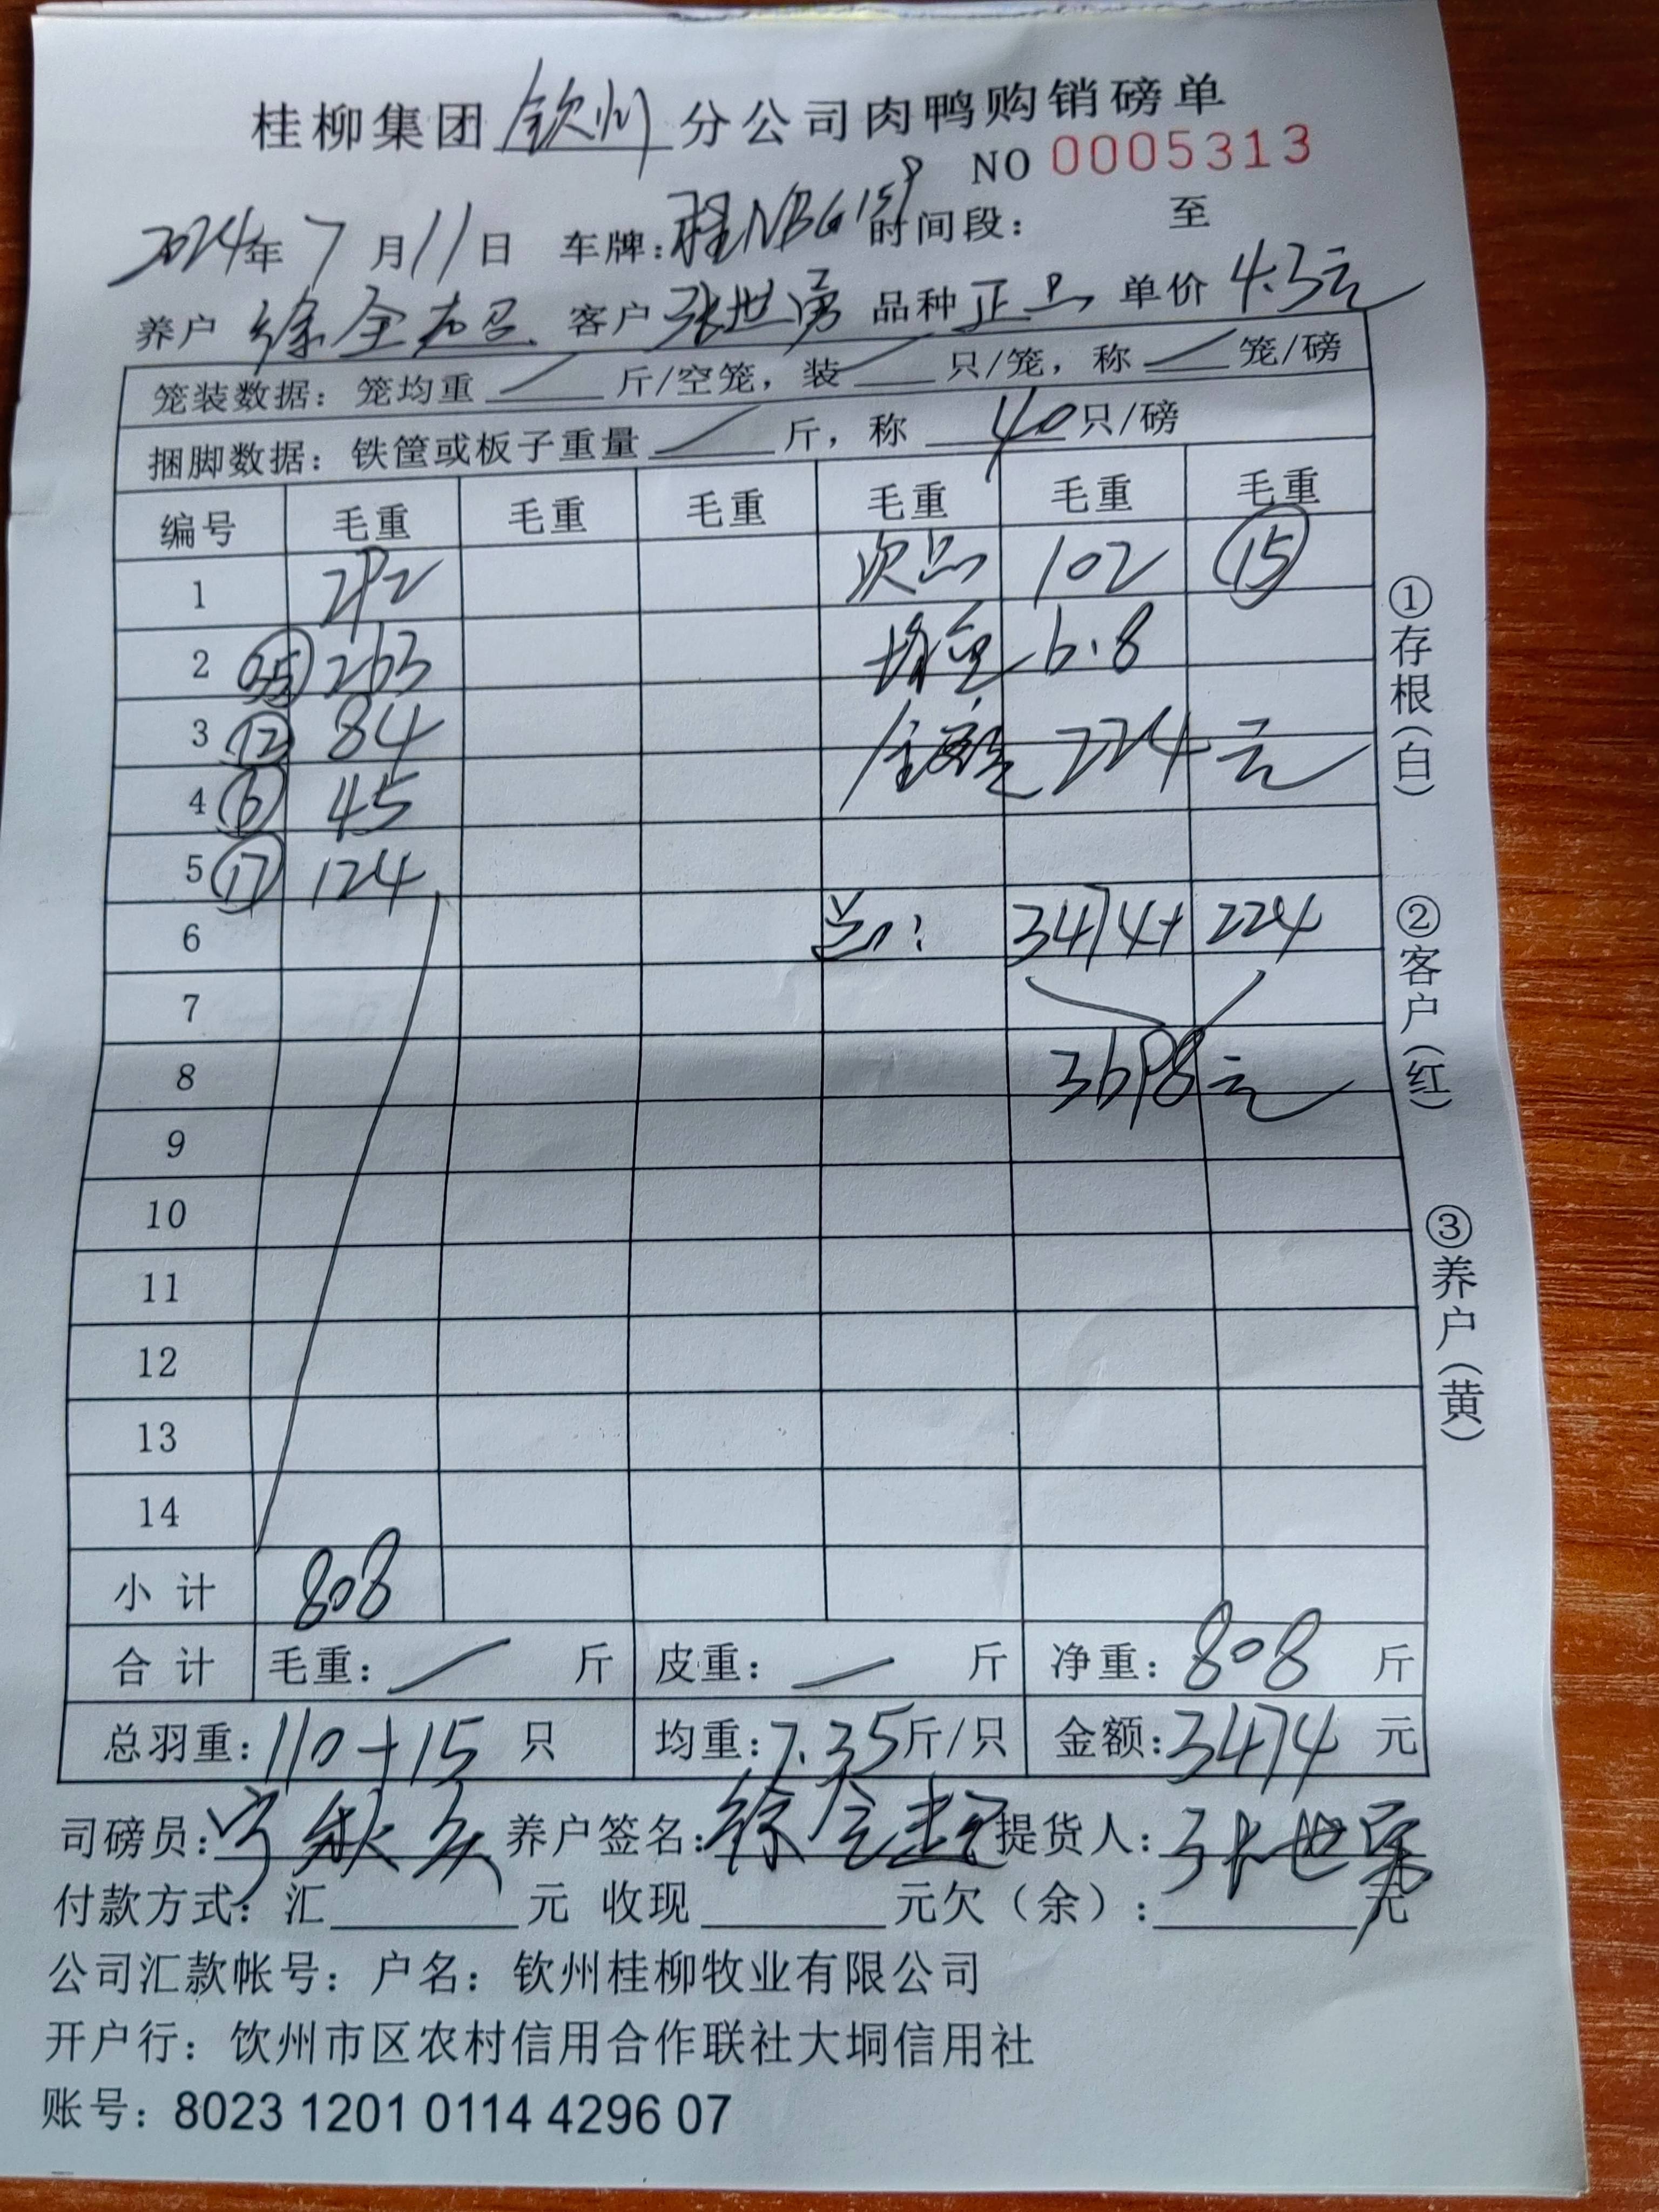 桂柳集团 钦州 分公司肉鸭购销磅单
NO 0005313
2024年 7 月 11 日 车牌: 桂NBG159 时间段: 至
养户 徐全超 客户 张世勇 品种 正品 单价 4.3元
笼装数据: 笼均重 / 斤/空笼, 装 / 只/笼, 称 / 笼/磅
捆脚数据: 铁筐或板子重量 / 斤, 称 40 只/磅
编号 毛重 毛重 毛重 毛重 毛重 毛重
1 292 次品 102 ⑮
2 ㉟ 263 均重 6.8
3 ⑫ 84 金额 224 元
4 ⑥ 45
5 ⑰ 124
6 总: 3474+ 224
7
8 3698元
9
10
11
12
13
14
小计 808
合计 毛重: 斤 皮重: 斤 净重: 808 斤
总羽重: 110+15 只 均重: 7.35斤/只 金额: 3474 元
司磅员: 养户签名: 徐全超 提货人: 张世勇
付款方式: 汇 元 收现 元欠(余): 元
公司汇款帐号: 户名: 钦州桂柳牧业有限公司
开户行: 饮州市区农村信用合作联社大垌信用社
账号: 8023 1201 0114 4296 07
①存根(白)
②客户(红)
③养户(黄)